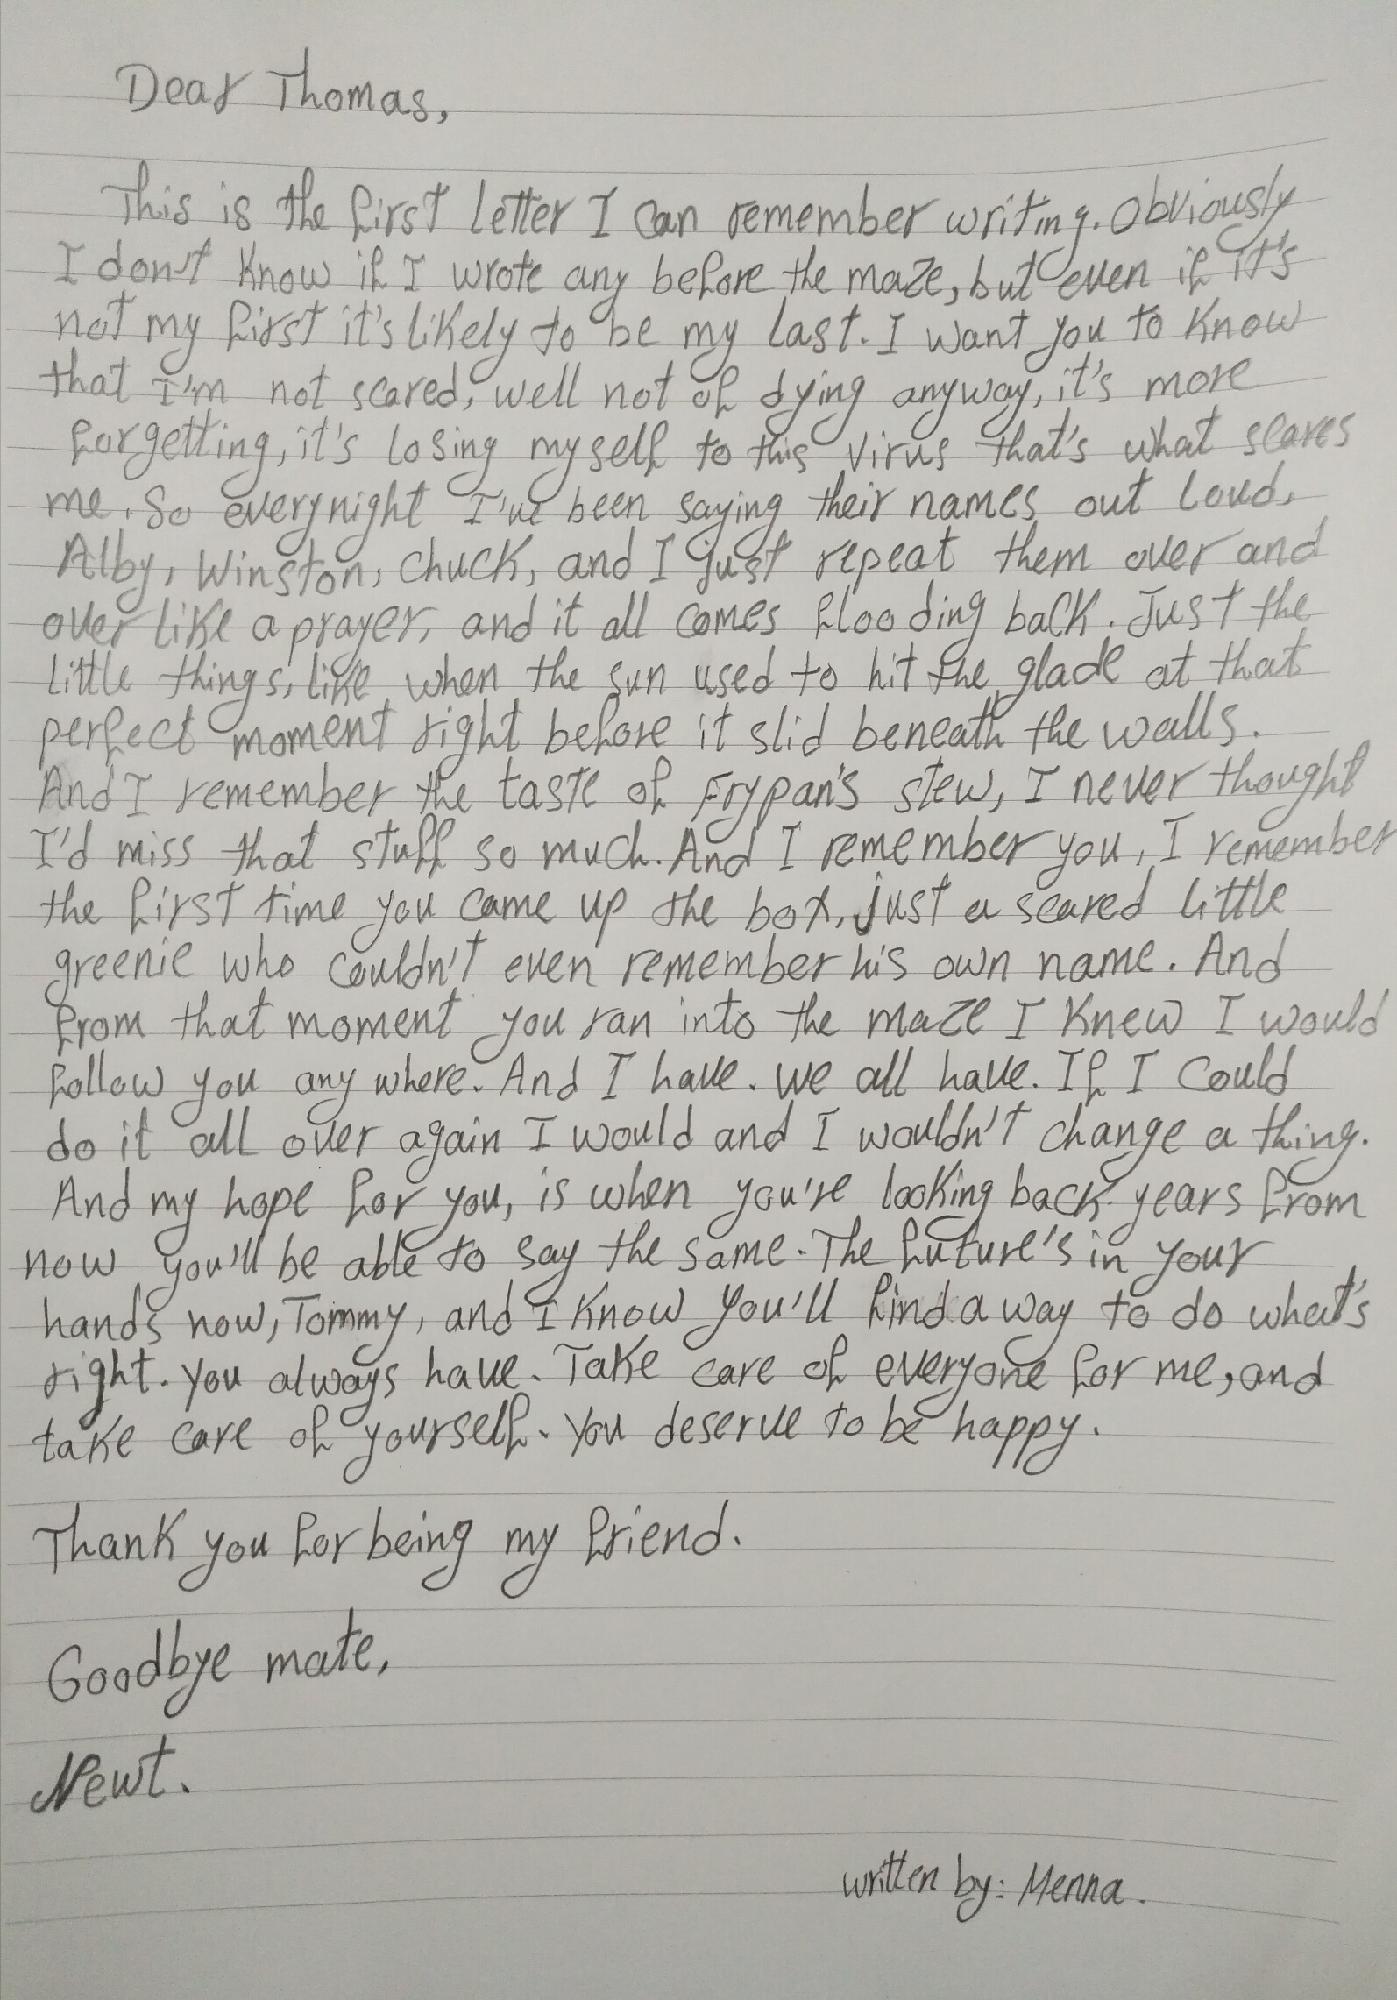 Dear Thomas,
This is the first letter I can remember writing. Obviously
I don't know if I wrote any before the maze, but even if it's
not my first it's likely to be my last. I want you to know
that I'm not scared, well not of dying anyway, it's more
forgetting, it's losing myself to this virus that's what scares
me. So every night I've been saying their names out loud,
Alby, Winston, Chuck, and I just repeat them over and
over like a prayer, and it all comes flooding back. Just the
little things, like when the sun used to hit the glade at that
perfect moment right before it slid beneath the walls.
And I remember the taste of Frypan's stew, I never thought
I'd miss that stuff so much. And I remember you, I remember
the first time you came up the box, just a scared little
greenie who couldn't even remember his own name. And
from that moment you ran into the maze I knew I would
follow you any where. And I have. we all have. If I could
do it all over again I would and I wouldn't change a thing.
And my hope for you, is when you're looking back years from
now you'll be able to say the same. The future's in your
hands now, Tommy, and I know you'll find a way to do what's
right. you always have. Take care of everyone for me, and
take care of yourself. you deserve to be happy.
Thank you for being my friend.
Goodbye mate,
Newt.
written by: Menna.